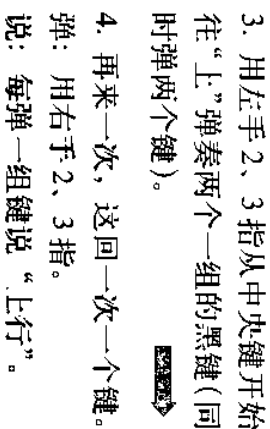 3. 用左手2、3指从中央键开始
往“上”弹奏两个一组的黑键(同
时弹两个键)。
4. 再来一次，这回一次一个键。
弹：用右手2、3指。
说：每弹一组键说“上行”。